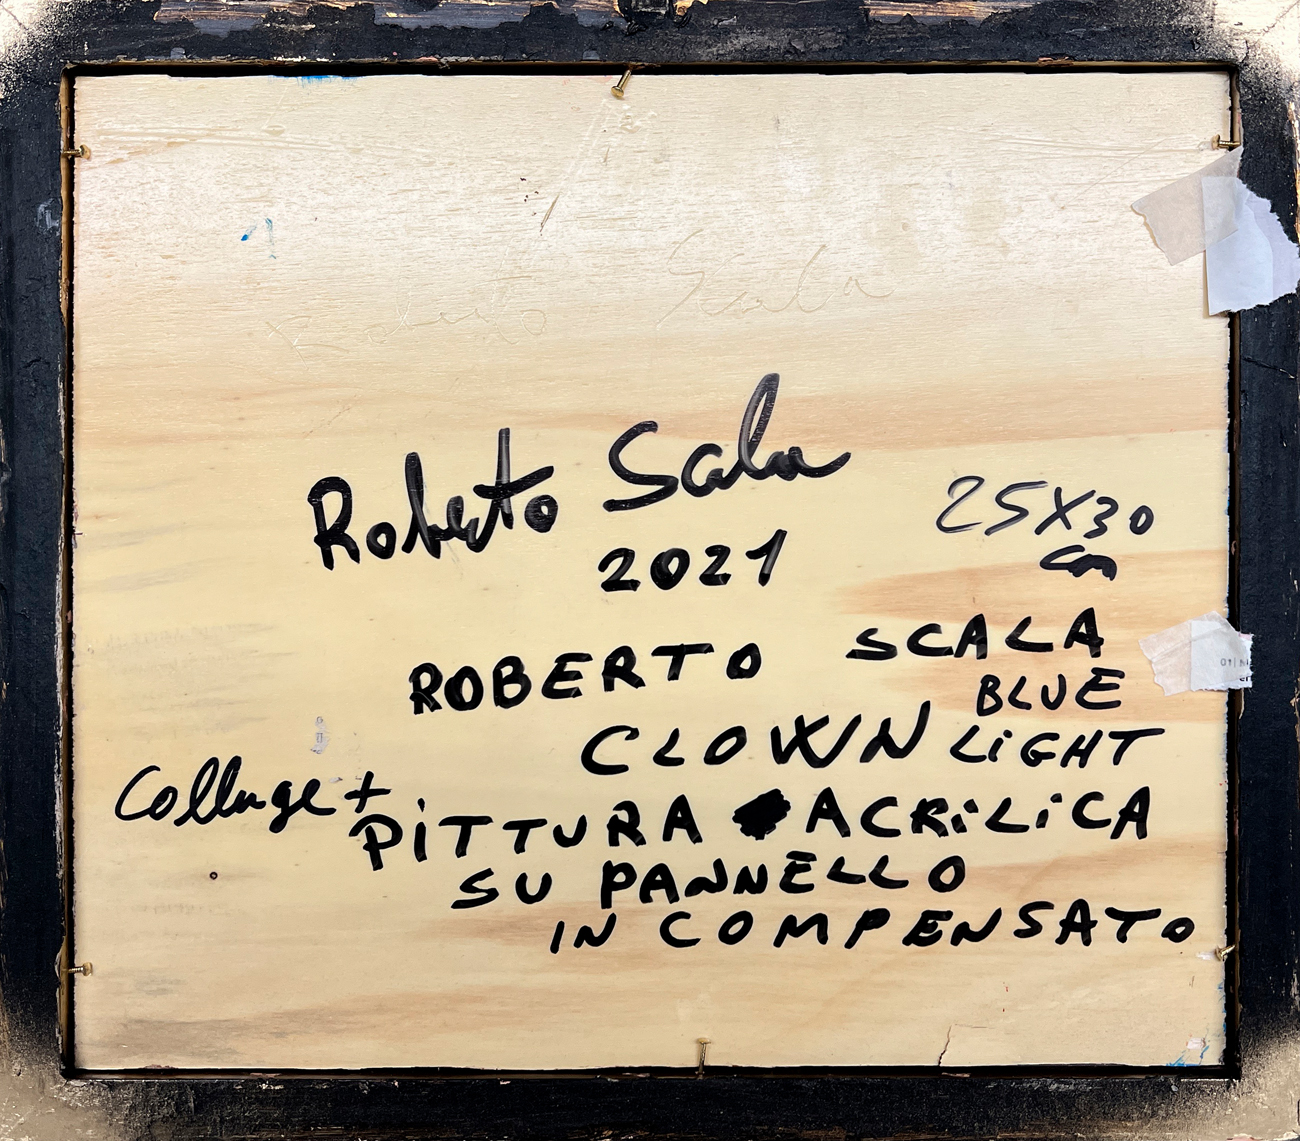 Roberto Scala
Roberto Scala
2021
25X30
cm
ROBERTO SCALA
BLUE
CLOWN LiGHT
Collage +
PiTTURA ACRiLiCA
SU PANNELLO
IN COMPENSATO